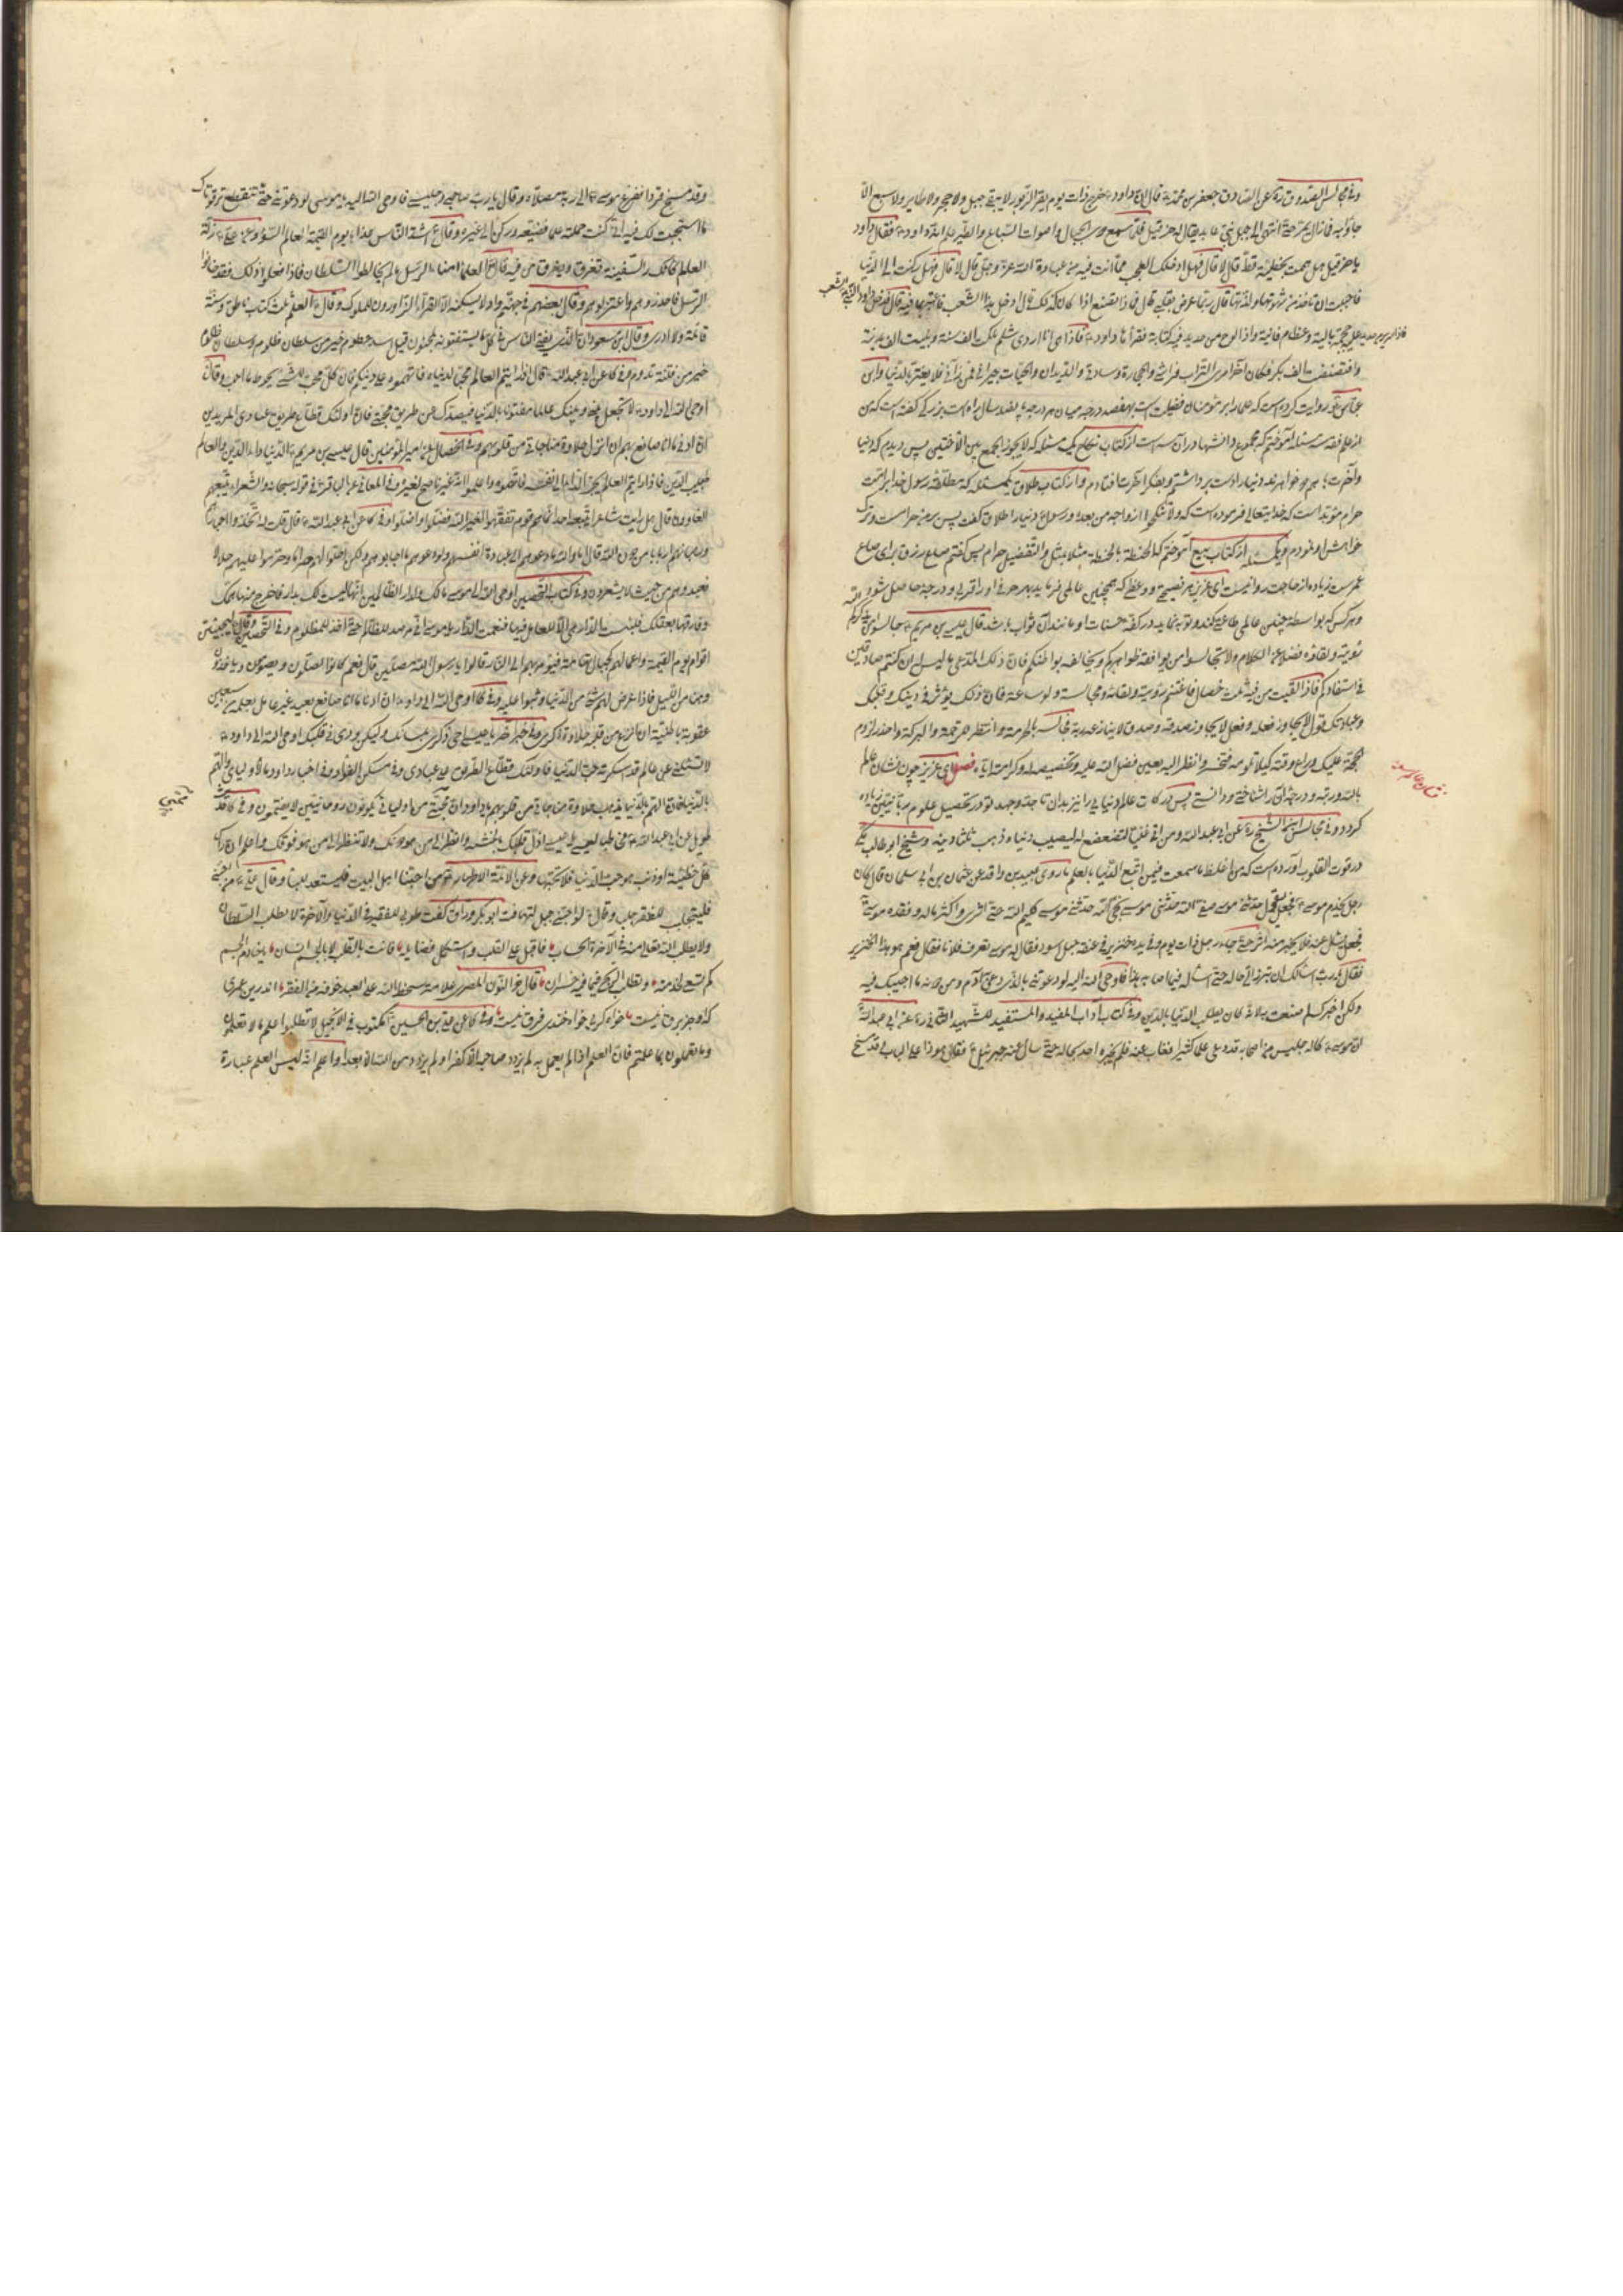 وفی مجالس الصدوق ره عن الصادق جعفر بن محمد ع قال ان داود ع خرج ذات یوم یقرأ الزبور لا یبقی جبل ولا حجر ولا طایر ولا سبع الا
جاوبه فما زال یمر حتی انتهی الی جبل نبی عابد یقال له حزقیل فلما سمع دوی الجبال واصوات السباع والطیر علم انه داود ع فقال داود
یا حزقیل هل هممت بخطیئة قط قال لا قال فهل دخلک العجب مما انت فیه من عبادة الله عز وجل قال لا قال فهل رکنت الی الدنیا
فاحببت ان تاخذ من شهوتها ولذتها قال ربما عرض بقلبی قال فماذا تصنع اذا کان ذلک قال ادخل هذا الشعب فاعتبر بما فیه قال فدخل داود النبی ع الشعب
فاذا سریر من حدید علیه جمجمة بالیة وعظام فانیة واذا لوح من حدید فیه کتابة فقرأها داود ع فاذا هی انا اروی شلم ملکت الف سنة وبنیت الف مدینة
وافتضضت الف بکر فکان آخر امری التراب فراشی والحجارة وسادتی والدیدان والحیات جیرانی فمن رآنی فلا یغتر بالدنیا وابن
عباس روایت کرده است که علما را بر مؤمنان فضیلت است بهفصد درجه میان هر درجه پانصد سال راه است بزرگی گفته است که من
از علم فقه سه مسئله آموختم که مجموع دانشها در آن سه است از کتاب نکاح یک مسئله که لا یجوز الجمع بین الاختین پس دیدم که دنیا
وآخرت با هم دو خواهرند دنیا را دست برداشتم و بفکر آخرت افتادم و از کتاب طلاق یک مسئله که مطلقه رسول خدا بر امت
حرام مؤبد است که خدایتعالی فرموده است که ولا تنکحوا ازواجه من بعده و رسول ع دنیا را طلاق گفت پس بر من حرام است و ترک
خواهش او نمودم ویک مسئله از کتاب بیع آموختم که الحنطة بالحنطة مثلا بمثل والتفضیل حرام پس گفتم صاع رزق برای صاع
عمر است زیاده از حاجت روا نیست ای عزیز هر نصیحت و وعظ که همچنین عالمی فرماید
وهر کس که بواسطه چنین عالمی طاعتی کند و توبه نماید در کفه حسنات او مانند آن ثواب باشد قال عیسی بن مریم ع جالسوا من یذکرکم الله
رؤیته ولقاؤه فضلا عن الکلام ولا تجالسوا من یوافقه ظواهرکم ویخالفه بواطنکم فان ذلک المدعی بما لیس له ان کنتم صادقین
فی استفادتکم فاذا لقیت من فیه ثلث خصال فاغتنم رؤیته ولقائه ومجالسته ولو ساعة فان ذلک یؤثر فی دینک وقلبک
وعبادتک قول لا یجاوز فعله وفعل لا یجاوز صدقه وصدق لا ینازعه ربه فجالسه بالحرمة وانتظر الرحمة والبرکة واحذر لزوم
الحجة علیک وراع وقته کیلا تلومه فتخسر وانظر الیه بعین فضل الله علیه وتخصیصه له وکرامته ایاه فصل ای عزیز چون نشان عالم
نشان عالم سوء
بالله و رتبه و درجه آن را شناختی و دانستی پس درکات عالم دنیایی را نیز بدان تا جد و جهد تو در تحصیل علوم ربانیین زیاده
گردد و فی مجالس ابن الشیخ ره عن ابی عبد الله ومن اتی غنیا فتضعضع له لیصیب دنیاه ذهب ثلثا دینه وشیخ ابو طالب مکی
در قوت القلوب آورده است که من اغلظ ما سمعت فیمن ابتغی الدنیا بالعلم ما روی عبید بن واقد عن عثمان بن ابی سلمان قال کان
رجل یخدم موسی ع فجعل یقول حدثنی موسی صفی الله حدثنی موسی نجی الله حدثنی موسی کلیم الله حتی اثری وکثر ماله وفقده موسی ع
فجعل یسئل عنه فلا یخبر منه اثرا حتی جاءه رجل ذات یوم وفی یده خنزیر فی عنقه حبل اسود فقال له موسی تعرف فلانا فقال نعم هو هذا الخنزیر
فقال یا رب اسألک ان ترده الی حاله حتی اسأله فیما اصابه هذا فاوحی الله الیه لو دعوتنی بالذی دعانی آدم ومن دونه ما اجیبک فیه
ولکن اخبرک لم صنعت به لانه کان یطلب الدنیا بالدین وفی کتاب آداب المفید والمستفید للشهید الثانی ره عن ابی عبد الله
ان موسی ع کان له جلیس من اصحابه قد وعی علما کثیرا فغاب عنه فلم یخبره احد بحاله حتی سأل عنه جبرئیل ع فقال هو ذا علی الباب قد مسخ
وقد مسخ قردا ففزع موسی ع الی ربه مصلاه وقال یا رب صاحبی وجلیسی فاوحی الله الیه یا موسی لو دعوتنی حتی تنقطع ترقوتاک
ما استجبت لک فیه انی کنت حملته علما فضیعه ورکن الی غیره وقال ع اشد الناس عذابا یوم القیمة العالم السوء وعن علی ع زلة
العالم کانکسار السفینة تغرق ویغرق من فیه وقال ع العلماء امناء الرسل ما لم یخالطوا السلطان فاذا فعلوا ذلک فقد خانوا
الرسل فاحذروهم واعتزلوهم وقال بعضهم فی جهنم واد لا یسکنه الا القراء الزائرون للملوک وقال ع العلم ثلث کتاب ناطق وسنة
قائمة ولا ادری وقال ابن مسعود ان الذی یفتی الناس فی کل ما یستفتونه لمجنون قیل اسد حطوم خیر من سلطان ظلوم وسلطان ظلوم
خیر من فتنة تدوم وفی کا عن ابی عبد الله ع قال اذا رایتم العالم محبا لدنیاه فاتهموه علی دینکم فان کل محب لشیء یحوط ما احب وقال
اوحی الله الی داود ع لا تجعل بینی وبینک عالما مفتونا بالدنیا فیصدک عن طریق محبتی فان اولئک قطاع طریق عبادی المریدین
ان ادنی ما انا صانع بهم ان انزع حلاوة مناجاتی من قلوبهم وفی الخصال عن امیر المؤمنین قال عیسی بن مریم ع الدنیا داء الدین والعالم
طبیب الدین فاذا رایتم الطبیب یجر الداء الی نفسه فاتهموه واعلموا انه غیر ناصح لغیره وفی المعانی عن الباقر ع فی قوله سبحانه والشعراء یتبعهم
الغاوون قال هل رایت شاعرا یتبعه احد انما هم قوم تفقهوا لغیر الله فضلوا واضلوا وفی کا عن ابی عبد الله ع قال قلت له اتخذوا احبارهم
ورهبانهم اربابا من دون الله فقال اما والله ما دعوهم الی عبادة انفسهم ولو دعوهم ما اجابوهم ولکن احلوا لهم حراما وحرموا علیهم حلالا
فعبدوهم من حیث لا یشعرون وفی کتاب التحصین اوحی الله الی موسی ما لک ولدار الظالمین انها لیست لک بدار فاخرج منها همک
وفارقها بعقلک فبئست الدار هی الا للعامل فیها فنعمت الدار یا موسی انی مرصد للظالم حتی اخذ للمظلوم وفی التحصین وقال ع لیجیئن
اقوام یوم القیمة واعمالهم کجبال تهامة فیؤمر بهم الی النار قالوا یا رسول الله مصلین قال نعم کانوا یصلون ویصومون ویاخذون
وهنا من اللیل فاذا عرض لهم شیء من الدنیا وثبوا علیه وفی کا اوحی الله الی داود ع ان ادنی ما انا صانع بعبد غیر عامل بعلمه من سبعین
عقوبة باطنیة ان انزع من قلبه حلاوة ذکری
لا تسئلنی عن عالم قد اسکرته حب الدنیا فاولئک قطاع الطریق علی عبادی وفی مسکن الفؤاد وفی اخبار داود ما لاولیائی والهم
بالدنیا فان الهم بالدنیا یذهب حلاوة مناجاتی من قلوبهم یا داود ان محبتی من اولیائی ان یکونوا روحانیین لا یغتمون وفی کا فی حدیث
کل خطیئة او ذنب هو حب الدنیا فلا تحبها وعن الائمة الاطهار ع من احبنا اهل البیت فلیستعد للبلاء وقال علی ع من احبنی
فلیتجلبب للفقر جلبابا وقال ع لو احبنی جبل لتهافت ابو بکر وراق گفت طوبی للفقیر فی الدنیا والآخرة لا یطلب السلطان
ولا یطلب الله تعالی منه فی الآخرة الحساب فاقبل علی القلب واستکمل فضایله فانت بالقلب لا بالجسم انسان یا خادم الجسم
کم تسعی لخدمته وتطلب الربح فیما فیه خسران قال ذو النون المصری علامة سخط الله علی العبد خوفه من الفقر
وفی کا عن علی بن الحسین ع مکتوب فی الانجیل لا تطلبوا علم ما لا تعلمون
ولما تعملوا بما علمتم فان العلم اذا لم یعمل به لم یزدد صاحبه الا کفرا ولم یزدد من الله الا بعدا واعلم انه لیس العلم عبارة